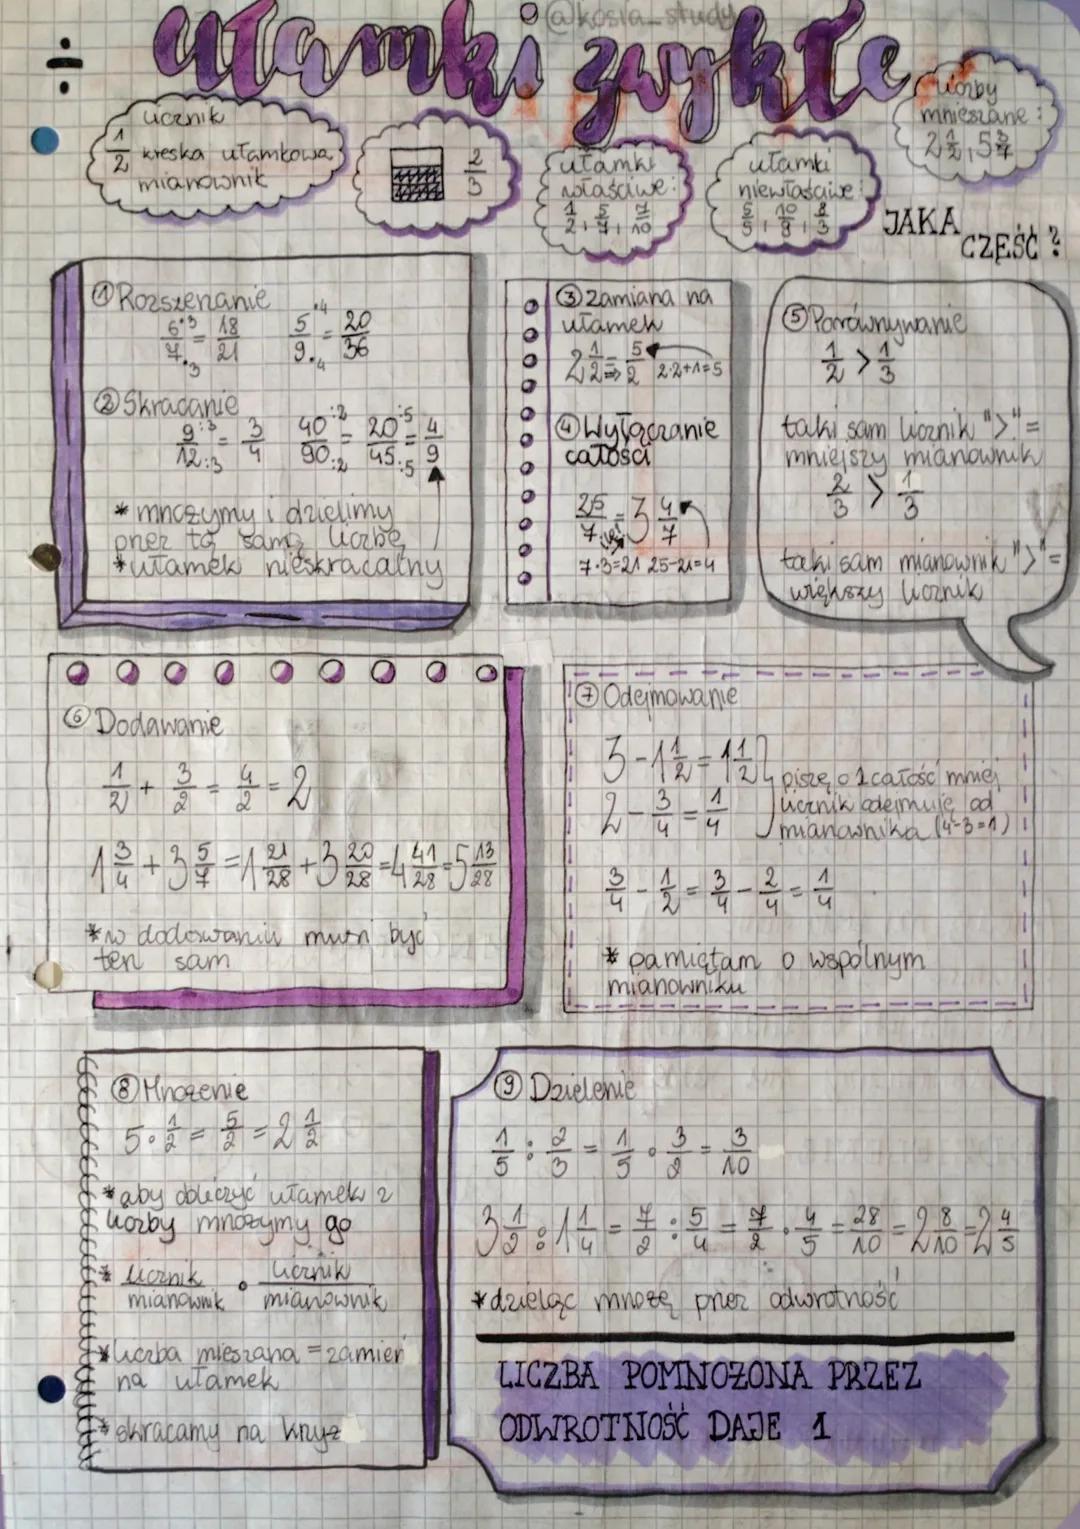 @kosia_study
ułamki zwykłe
licznik
1/2 kreska ułamkowa
mianownik
2/3
ułamki
właściwe:
1/2, 5/7, 7/10
ułamki
niewłaściwe:
5/5, 10/8, 8/3
liczby
mnieszane:
2 1/2, 5 3/7
JAKA
CZĘŚĆ?
① Rozszerzanie
6·3/7·3 = 18/21 5·4/9·4 = 20/36
② Skracanie
9:3/12:3 = 3/4 40:2/90:2 = 20:5/45:5 = 4/9
* mnożymy i dzielimy
przez tą samą liczbę
* ułamek nieskracalny
③ Zamiana na
ułamek
2 1/2 ⇒ 5/2 2·2+1=5
④ Wyłączanie
całości
25/7 = 3 4/7
7·3=21 25-21=4
⑤ Porównywanie
1/2 > 1/3
taki sam licznik ">" =
mniejszy mianownik
2/3 > 1/3
taki sam mianownik ">" =
większy licznik
⑥ Dodawanie
1/2 + 3/2 = 4/2 = 2
1 3/4 + 3 5/7 = 1 21/28 + 3 20/28 = 4 41/28 = 5 13/28
* w dodawaniu musi być
ten sam
⑦ Odejmowanie
3 - 1 1/2 = 1 1/2
2 - 3/4 = 1/4
piszę o 1 całość mniej
licznik odejmuję od
mianownika (4-3=1)
3/4 - 1/2 = 3/4 - 2/4 = 1/4
* pamiętam o wspólnym
mianowniku
⑧ Mnożenie
5 · 1/2 = 5/2 = 2 1/2
* aby obliczyć ułamek z
liczby mnożymy go
* licznik/mianownik · licznik/mianownik
* liczba mieszana = zamień
na ułamek
* skracamy na krzyż
⑨ Dzielenie
1/5 : 2/3 = 1/5 · 3/2 = 3/10
3 1/2 : 1 1/4 = 7/2 : 5/4 = 7/2 · 4/5 = 28/10 = 2 8/10 = 2 4/5
* dzieląc mnożę przez odwrotność
LICZBA POMNOŻONA PRZEZ
ODWROTNOŚĆ DAJE 1